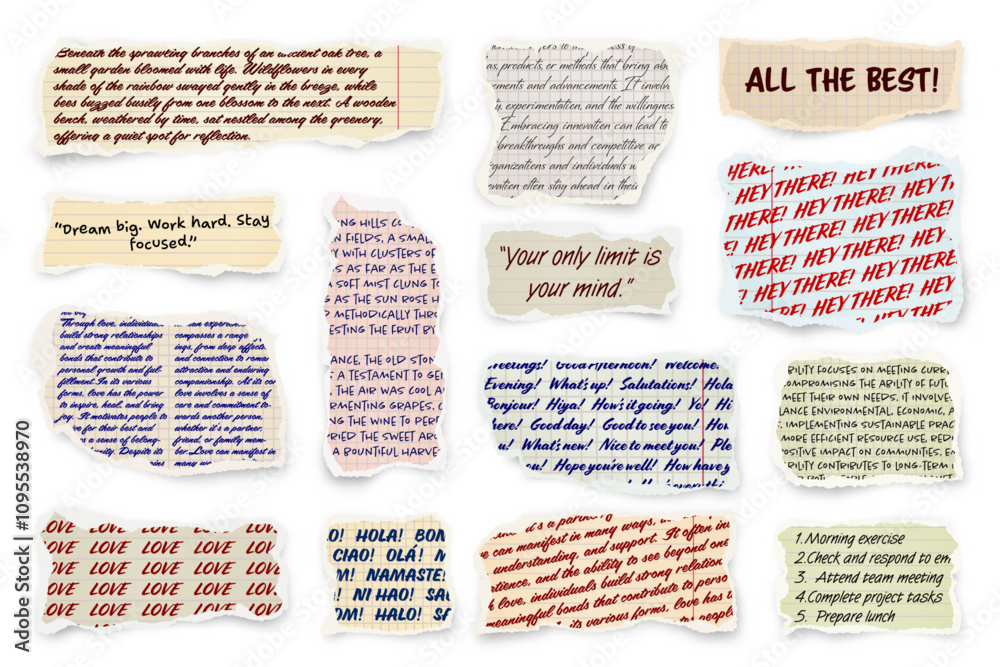 Beneath the sprawling branches of an ancient oak tree, a
small garden bloomed with life. Wildflowers in every
shade of the rainbow swayed gently in the breeze, while
bees buzzed busily from one blossom to the next. A wooden
bench, weathered by time, sat nestled among the greenery,
offering a quiet spot for reflection.
as, products, or methods that bring abo
ements and advancements. It involv
y, experimentation, and the willingness
Embracing innovation can lead to
breakthroughs and competitive ac
ganizations and individuals w
vation often stay ahead in their
ALL THE BEST!
HERE! HEY THERE! HEY THERE!
HEY THERE! HEY THERE! HEY THERE!
HEY THERE! HEY THERE! HEY THERE!
E! HEY THERE! HEY THERE! HEY
E! HEY THERE! HEY THERE! HEY
E! HEY THERE! HEY THERE!
HEY THERE! HEY THERE!
"Dream big. Work hard. Stay
focused."
NG HILLS CO
N FIELDS, A SMALL
Y WITH CLUSTERS OF
S AS FAR AS THE E
SOFT MIST CLUNG TO
G AS THE SUN ROSE H
D METHODICALLY THRO
ESTING THE FRUIT BY
ANCE, THE OLD STON
A TESTAMENT TO GE
THE AIR WAS COOL A
RMENTING GRAPES,
G THE WINE TO PER
RIED THE SWEET AR
A BOUNTIFUL HARVE
"Your only limit is
your mind."
Through love, individua
build strong relationships
and create meaningful
bonds that contribute to
personal growth and ful-
fillment. In its various
forms, love has the power
to inspire, heal, and bring
joy. It motivates people to
ve for their best and
s a sense of belong-
unity. Despite its
an experienc
compasses a range
ings, from deep affecti
and connection to roman
attraction and enduring
companionship. At its co
involves a sense of
care and commitment to-
wards another person,
whether it's a partner,
friend, or family mem-
ber. Love can manifest in
many w
Greetings! Good afternoon! Welcome!
Evening! What's up! Salutations! Hola
Bonjour! Hiya! How's it going! Yo! Hi
here! Good day! Good to see you! How
u! What's new! Nice to meet you! Ple
ou! Hope you're well! How have y
BILITY FOCUSES ON MEETING CURR
OMPROMISING THE ABILITY OF FUTU
MEET THEIR OWN NEEDS. IT INVOLVE
LANCE ENVIRONMENTAL, ECONOMIC, A
IMPLEMENTING SUSTAINABLE PRAC
MORE EFFICIENT RESOURCE USE, RED
POSITIVE IMPACT ON COMMUNITIES, E
BILITY CONTRIBUTES TO LONG-TERM
LOVE LOVE LOVE LOVE LOV
LOVE LOVE LOVE LOVE LOV
LOVE LOVE LOVE LOVE LOV
LOVE LOVE LOVE LOVE LOV
LOVE LOVE LOVE LOVE LOV
O! HOLA! BON
CIAO! OLÁ! N
M! NAMASTE!
! NI HAO! SA
OM! HALO! S
it's a partner
e can manifest in many ways, in
understanding, and support. It often in
tience, and the ability to see beyond one
h love, individuals build strong relation
meaningful bonds that contribute to perso
its various forms, love has
1. Morning exercise
2. Check and respond to em
3. Attend team meeting
4. Complete project tasks
5. Prepare lunch
Adobe Stock | #1095538970